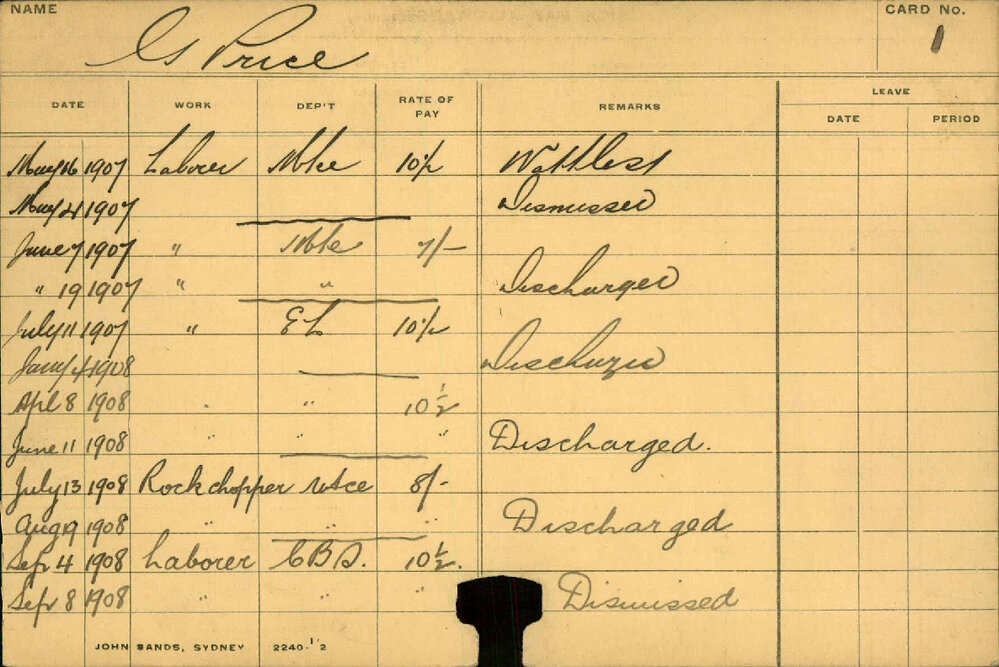 NAME G Price CARD No. 1
DATE WORK DEP'T RATE OF PAY REMARKS LEAVE
DATE PERIOD
May 16 1907 Laborer 10½
May 21 1907 Dismissed
June 7 1907 " 7/-
" 19 1907 " " Discharged
July 11 1907 " E L 10½
Jany 4 1908 Discharged
Apl 8 1908 " " 10½
June 11 1908 " " " Discharged.
July 13 1908 Rockchopper 8/-
Aug 19 1908 " " " Discharged
Sepr 4 1908 Laborer C B S. 10½.
Sepr 8 1908 " " " Dismissed
JOHN SANDS, SYDNEY 2240-1'2